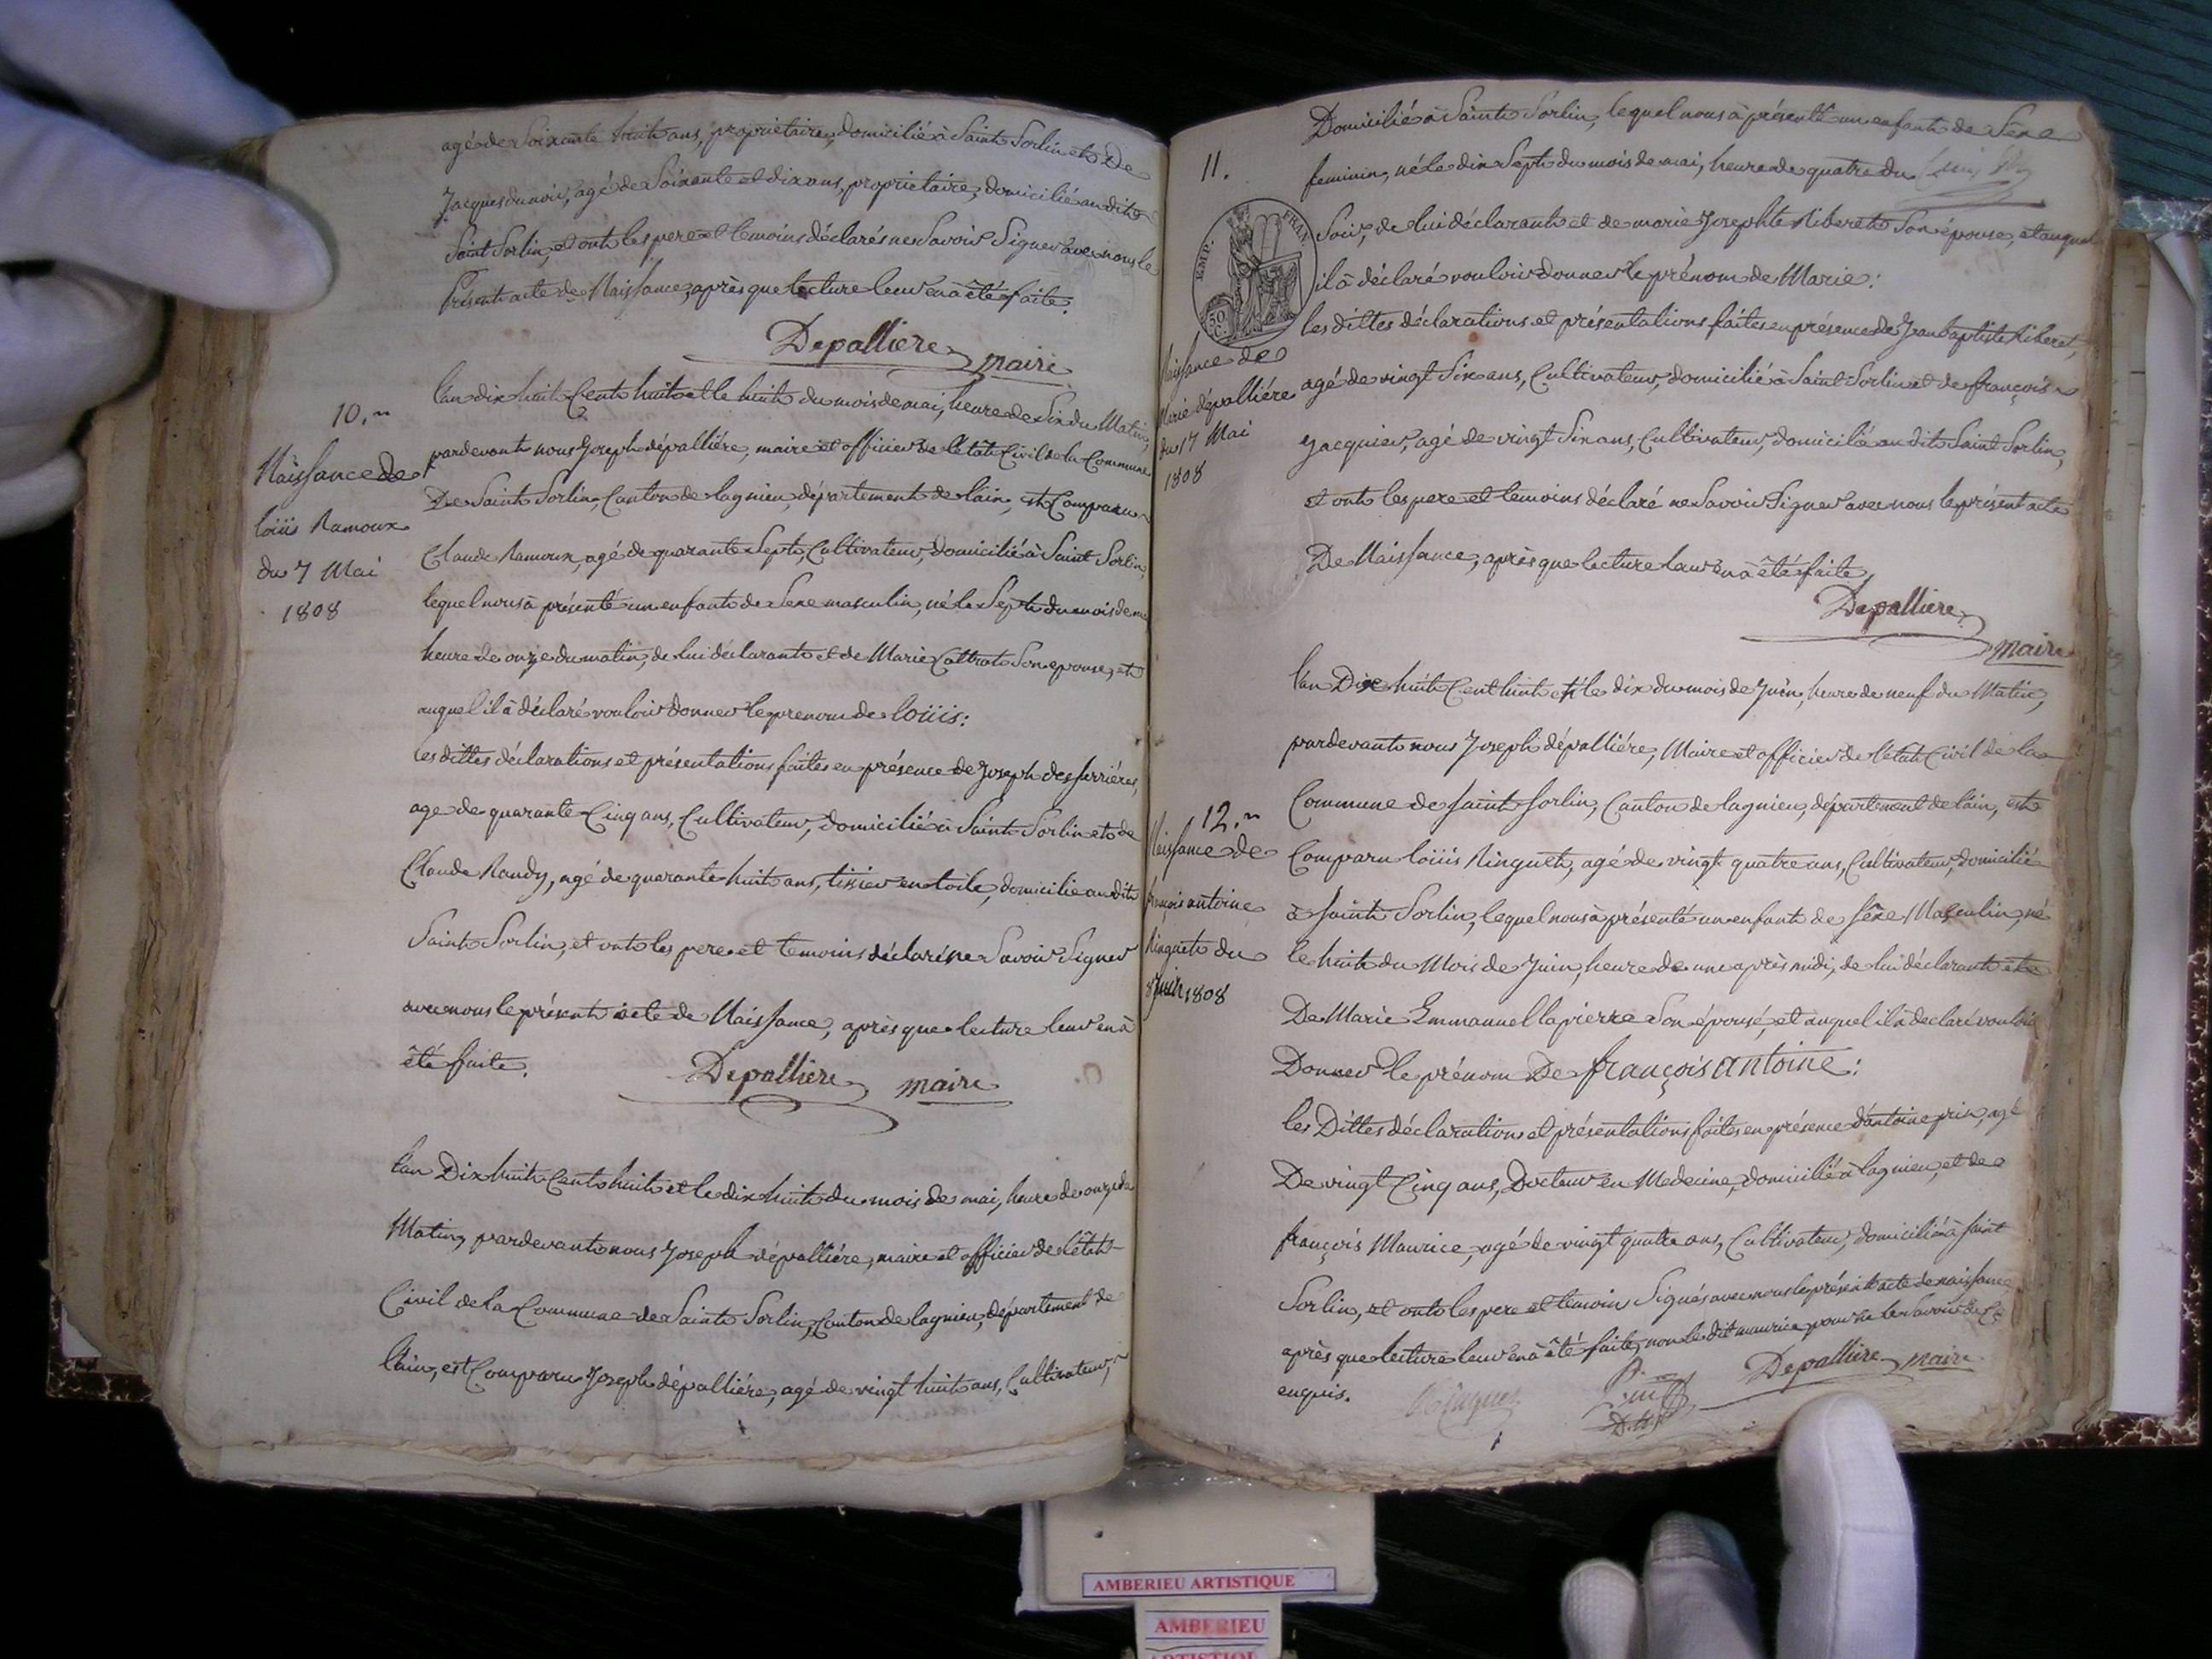 agé de Soixante huit ans, propriétaire, domicilié à Saint Sorlin et De
Jacques dunoir, agé de Soixante et dix ans, propriétaire, domicilié au dit
Saint Sorlin, et ont les pere et temoins déclarés ne Savoir Signer avec nous le
Présent acte de Naissance, après que lecture leur en à été faite.
Depalliere maire
10.
Naissance de
loüis Ramoux
du 7 Mai
1808
lan dix huit Cent huit et le huit du mois de mai, heure de Six du Matin,
pardevant nous Joseph dépalliére, maire et officier de létât Civil de la Commune
De Saint Sorlin, Canton de lagnieu, département de lain, est Comparu
Claude Ramoux, agé de quarante Sept, Cultivateur, domicilié à Saint Sorlin,
lequel nous à présenté un enfant de Sexe masculin, né le Sept du mois de mai
heure de onze du matin, de lui déclarant et de Marie Cattrat Son epouse, et
auquel il à déclaré vouloir donner le prenom de loüis:
les dittes déclarations et présentations faites en présence de Joseph desferriéres,
age de quarante Cinq ans, Cultivateur, domicilié à Saint Sorlin et de
Claude Randy, agé de quarante huit ans, tissier en toile, domicilie au dit
Saint Sorlin, et ont les pere et temoins déclaré ne Savoir Signer
avec nous le présent acte de Naissance, après que lecture leur en à
été faite.
Depalliere maire
lan Dix huit Cent huit et le dix huit du mois de mai, heure de onze du
Matin, pardevant nous Joseph dépalliére, maire et officier de létat
Civil de la Commune de Saint Sorlin, Canton de lagnieu, département de
lain, est Comparu Joseph dépalliére, agé de vingt huit ans, Cultivateur,
Domicilié à Saint Sorlin, lequel nous à présenté un enfant de Sexe
11.
feminin, né le dix Sept du mois de mai, heure de quatre du
EMP. FRAN
50 C.
Soir, de lui déclarant et de marie Josephte Riberet Son épouse, et auquel
il à déclaré vouloir donner le prénom de Marie:
les dittes déclarations et présentations faites en présence de Jean baptiste Riberet,
Naissance de
Marie dépalliére
du 17 Mai
1808
agé de vingt Six ans, Cultivateur, domicilié à Saint Sorlin et de françois
Jacquier, agé de vingt Six ans, Cultivateur, domicilié au dit Saint Sorlin,
et ont les pere et temoins déclaré ne Savoir Signer avec nous le présent acte
De Naissance, après que lecture leur en à été faite,
Depalliere
maire
l'an Dix huit Cent huit et le dix du mois de Juin, heure de neuf du Matin,
pardevant nous Joseph dépalliére, Maire et officier de létat Civil de la
Commune de Saint Sorlin, Canton de lagnieu, département de lain, est
12.
Naissance de
françois antoine
Ringuet du
8 Juin 1808
Comparu loüis Ringuet, agé de vingt quatre ans, Cultivateur, domicilié
à Saint Sorlin, lequel nous à présenté un enfant de Sexe Masculin, né
le huit du Mois de Juin, heure de une après midi, de lui déclarant et
De Marie Emmanuel lapierre Son épouse, et auquel il à declaré vouloir
Donner le prénom De françois antoine:
les Dittes déclarations et présentations faites en présence d'antoine prin, agé
De vingt Cinq ans, Docteur en Medecine, domicilié à lagnieu, et de
françois Maurice, agé de vingt quatre ans, Cultivateur, domicilié à Saint
Sorlin, et ont les pere et temoin Signés avec nous le présent acte de naissance
après que lecture leur en à été faite, non le dit maurice pour ne le Savoir de Ce
enquis.
Depalliere maire
AMBERIEU ARTISTIQUE
AMBERIEU
ARTISTIQUE